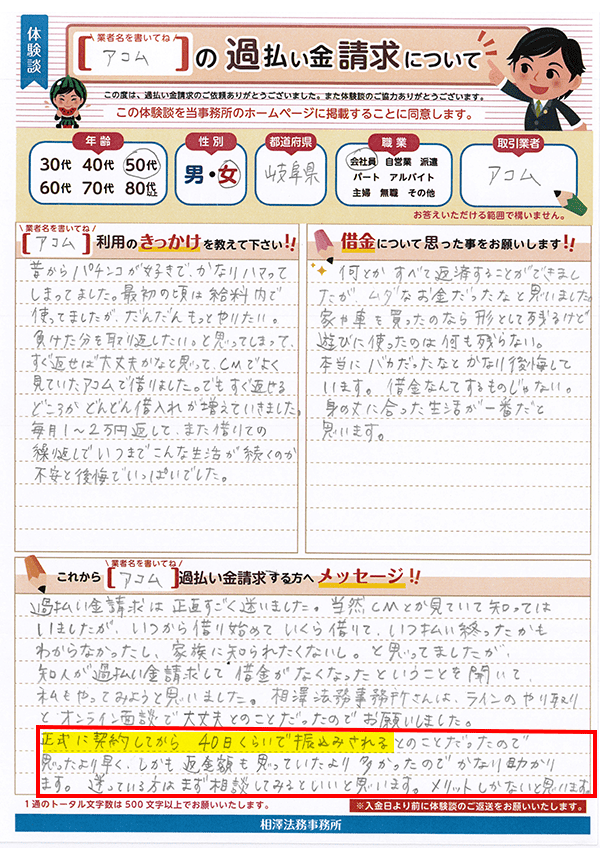 体験談
業者名を書いてね
[アコム]の過払い金請求について
この度は、過払い金請求のご依頼ありがとうございました。また体験談のご協力ありがとうございます。
この体験談を当事務所のホームページに掲載することに同意します。
年齢
30代 40代 50代
60代 70代 80代以上
性別
男・女
都道府県
岐阜県
職業
会社員 自営業 派遣
パート アルバイト
主婦 無職 その他
取引業者
アコム
お答えいただける範囲で構いません。
業者名を書いてね
[アコム]利用のきっかけを教えて下さい!!
昔からパチンコが好きで、かなりハマって
しまってました。最初の頃は給料内で
使ってましたが、だんだんもっとやりたい。
負けた分を取り返したい。と思ってしまって、
すぐ返せば大丈夫かなと思って、CMでよく
見ていたアコムで借りました。でもすぐ返せる
どころかどんどん借入れが増えていきました。
毎月1〜2万円返して、また借りての
繰り返しでいつまでこんな生活が続くのか
不安と後悔でいっぱいでした。
借金について思った事をお願いします!!
何とかすべて返済することができまし
たが、ムダなお金だったなと思いました。
家や車を買ったのなら形として残るけど
遊びに使ったのは何も残らない。
本当にバカだったなとかなり後悔して
います。借金なんてするものじゃない。
身の丈に合った生活が一番だと
思います。
業者名を書いてね
これから[アコム]過払い金請求する方へメッセージ!!
過払い金請求は正直すごく迷いました。当然CMとか見ていて知っては
いましたが、いつから借り始めていくら借りて、いつ払い終ったかも
わからなかったし、家族に知られたくないし。と思ってましたが、
知人が過払い金請求して借金がなくなったということを聞いて、
私もやってみようと思いました。相澤法務事務所さんは、ラインのやり取り
とオンライン面談で大丈夫とのことだったのでお願いしました。
正式に契約してから、40日くらいで振込みされるとのことだったので
思ったより早く、しかも返金額も思っていたより多かったのでかなり助かり
ます。迷っている方はまず相談してみるといいと思います。メリットしかないと思います。
1通のトータル文字数は500文字以上でお願いいたします。
※入金日より前に体験談のご返送をお願いいたします。
相澤法務事務所